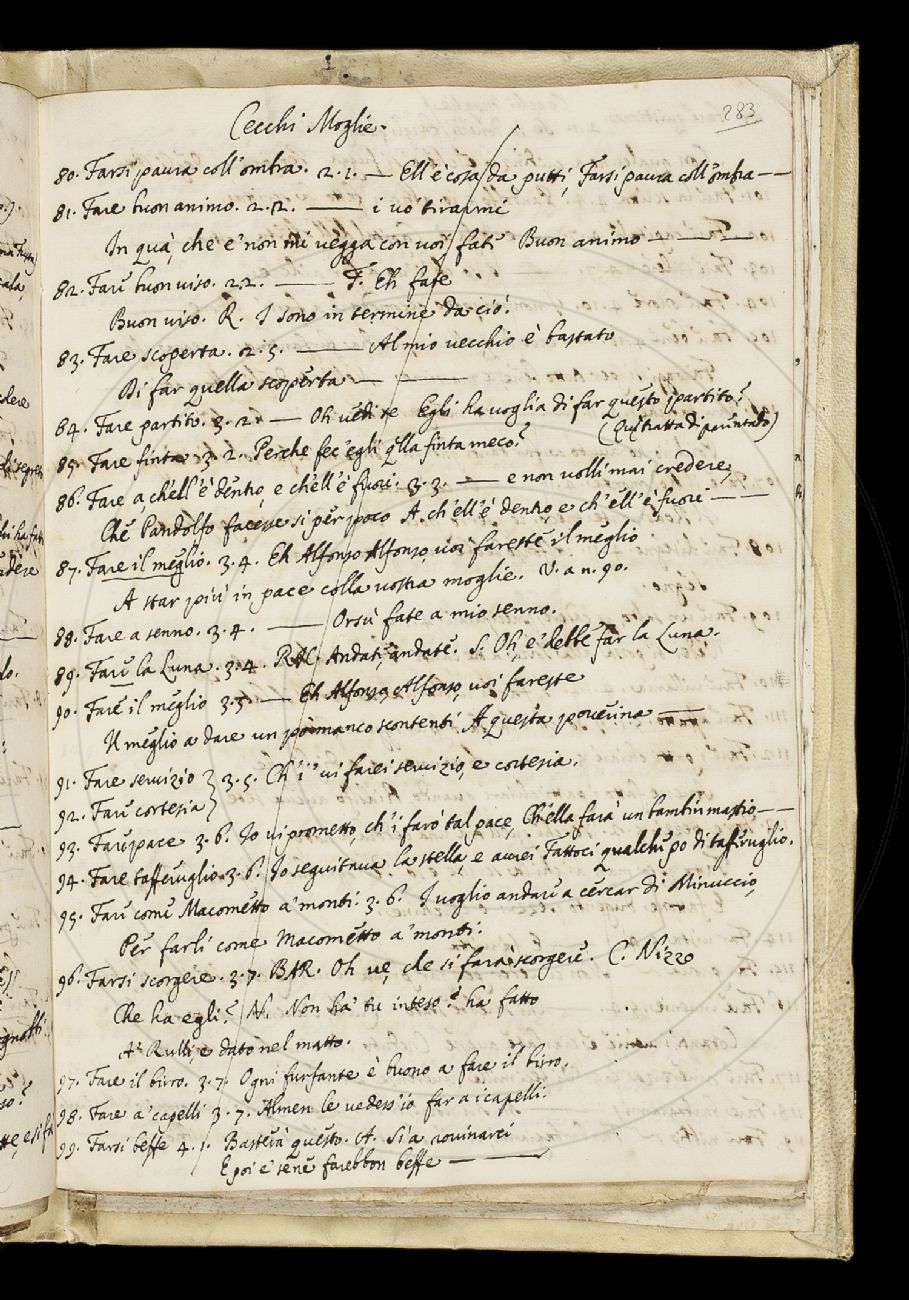 283
Cecchi Moglie.
80. Farsi paura coll'ombra. 2.1. — Ell'è cosa da putti, Farsi paura coll'ombra — —
81. Fare buon animo. 2.2. — i vo' tirarmi
In quà, che e' non mi vegga con voi, fate Buon animo — — —
82. Fare buon viso. 2.2. — F. Eh fate
Buon viso. R. I sono in termine da ciò.
83. Fare scoperta. 2.5. — Al mio vecchio è bastato
Di far quella scoperta — —
84. Fare partito. 3.2. — Oh vedete Egli ha voglia di far questo partito?
(Qui tratta di parentado)
85. Fare finta 3.2. Perche fec'egli q'lla finta meco?
86. Fare a, ch'ell'è dentro, e ch'ell'è fuori. 3.3. — e non volli mai credere,
Che Pandolfo facesse si per poco A, ch'ell'è dentro, e ch'ell'è fuori — —
87. Fare il meglio. 3.4. Eh Alfonso Alfonso, voi fareste il meglio
A star più in pace colla vostra moglie. V. a n. 90.
88. Fare a senno. 3.4. — Orsù fate a mio senno.
89. Fare la Luna. 3.4. RAL. Andate, andate. S. Oh, e' debbe far la Luna.
90. Fare il meglio 3.5. — Eh Alfonso, Alfonso, voi fareste
Il meglio a dare un po' manco scontenti A questa poverina —
91. Fare servizio } 3.5. Ch'i' vi farei servizio, e cortesia.
92. Fare cortesia }
93. Fare pace 3.6. Io vi prometto, ch'i farò tal pace, Ch'ella farà un bambin mastio — —
94. Fare tafferuglio. 3.6. Io seguitava la stella, e avrei Fattoci qualche po di tafferuglio.
95. Fare come Macometto a' monti. 3.6. I voglio andare a cercar di Minuccio,
Per farli come Macometto a' monti.
96. Farsi scorgere. 3.7. BAR. Oh ve, che si farà scorgere. C. Nizzo
Che ha egli? N. Non ha' tu inteso? ha fatto
A' Rulli e dato nel matto.
97. Fare il birro. 3.7. Ogni furfante è buono a fare il birro.
98. Fare a' capelli 3.7. Almen le vedess'io far a i capelli.
99. Farsi beffe 4.1. Basteria questo. A. Si a rovinarci
E poi e' se ne farebbon beffe — —